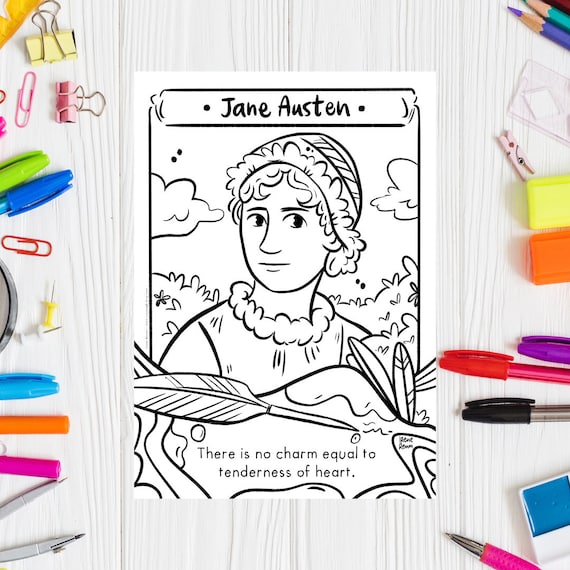 • Jane Austen •
There is no charm equal to
tenderness of heart.